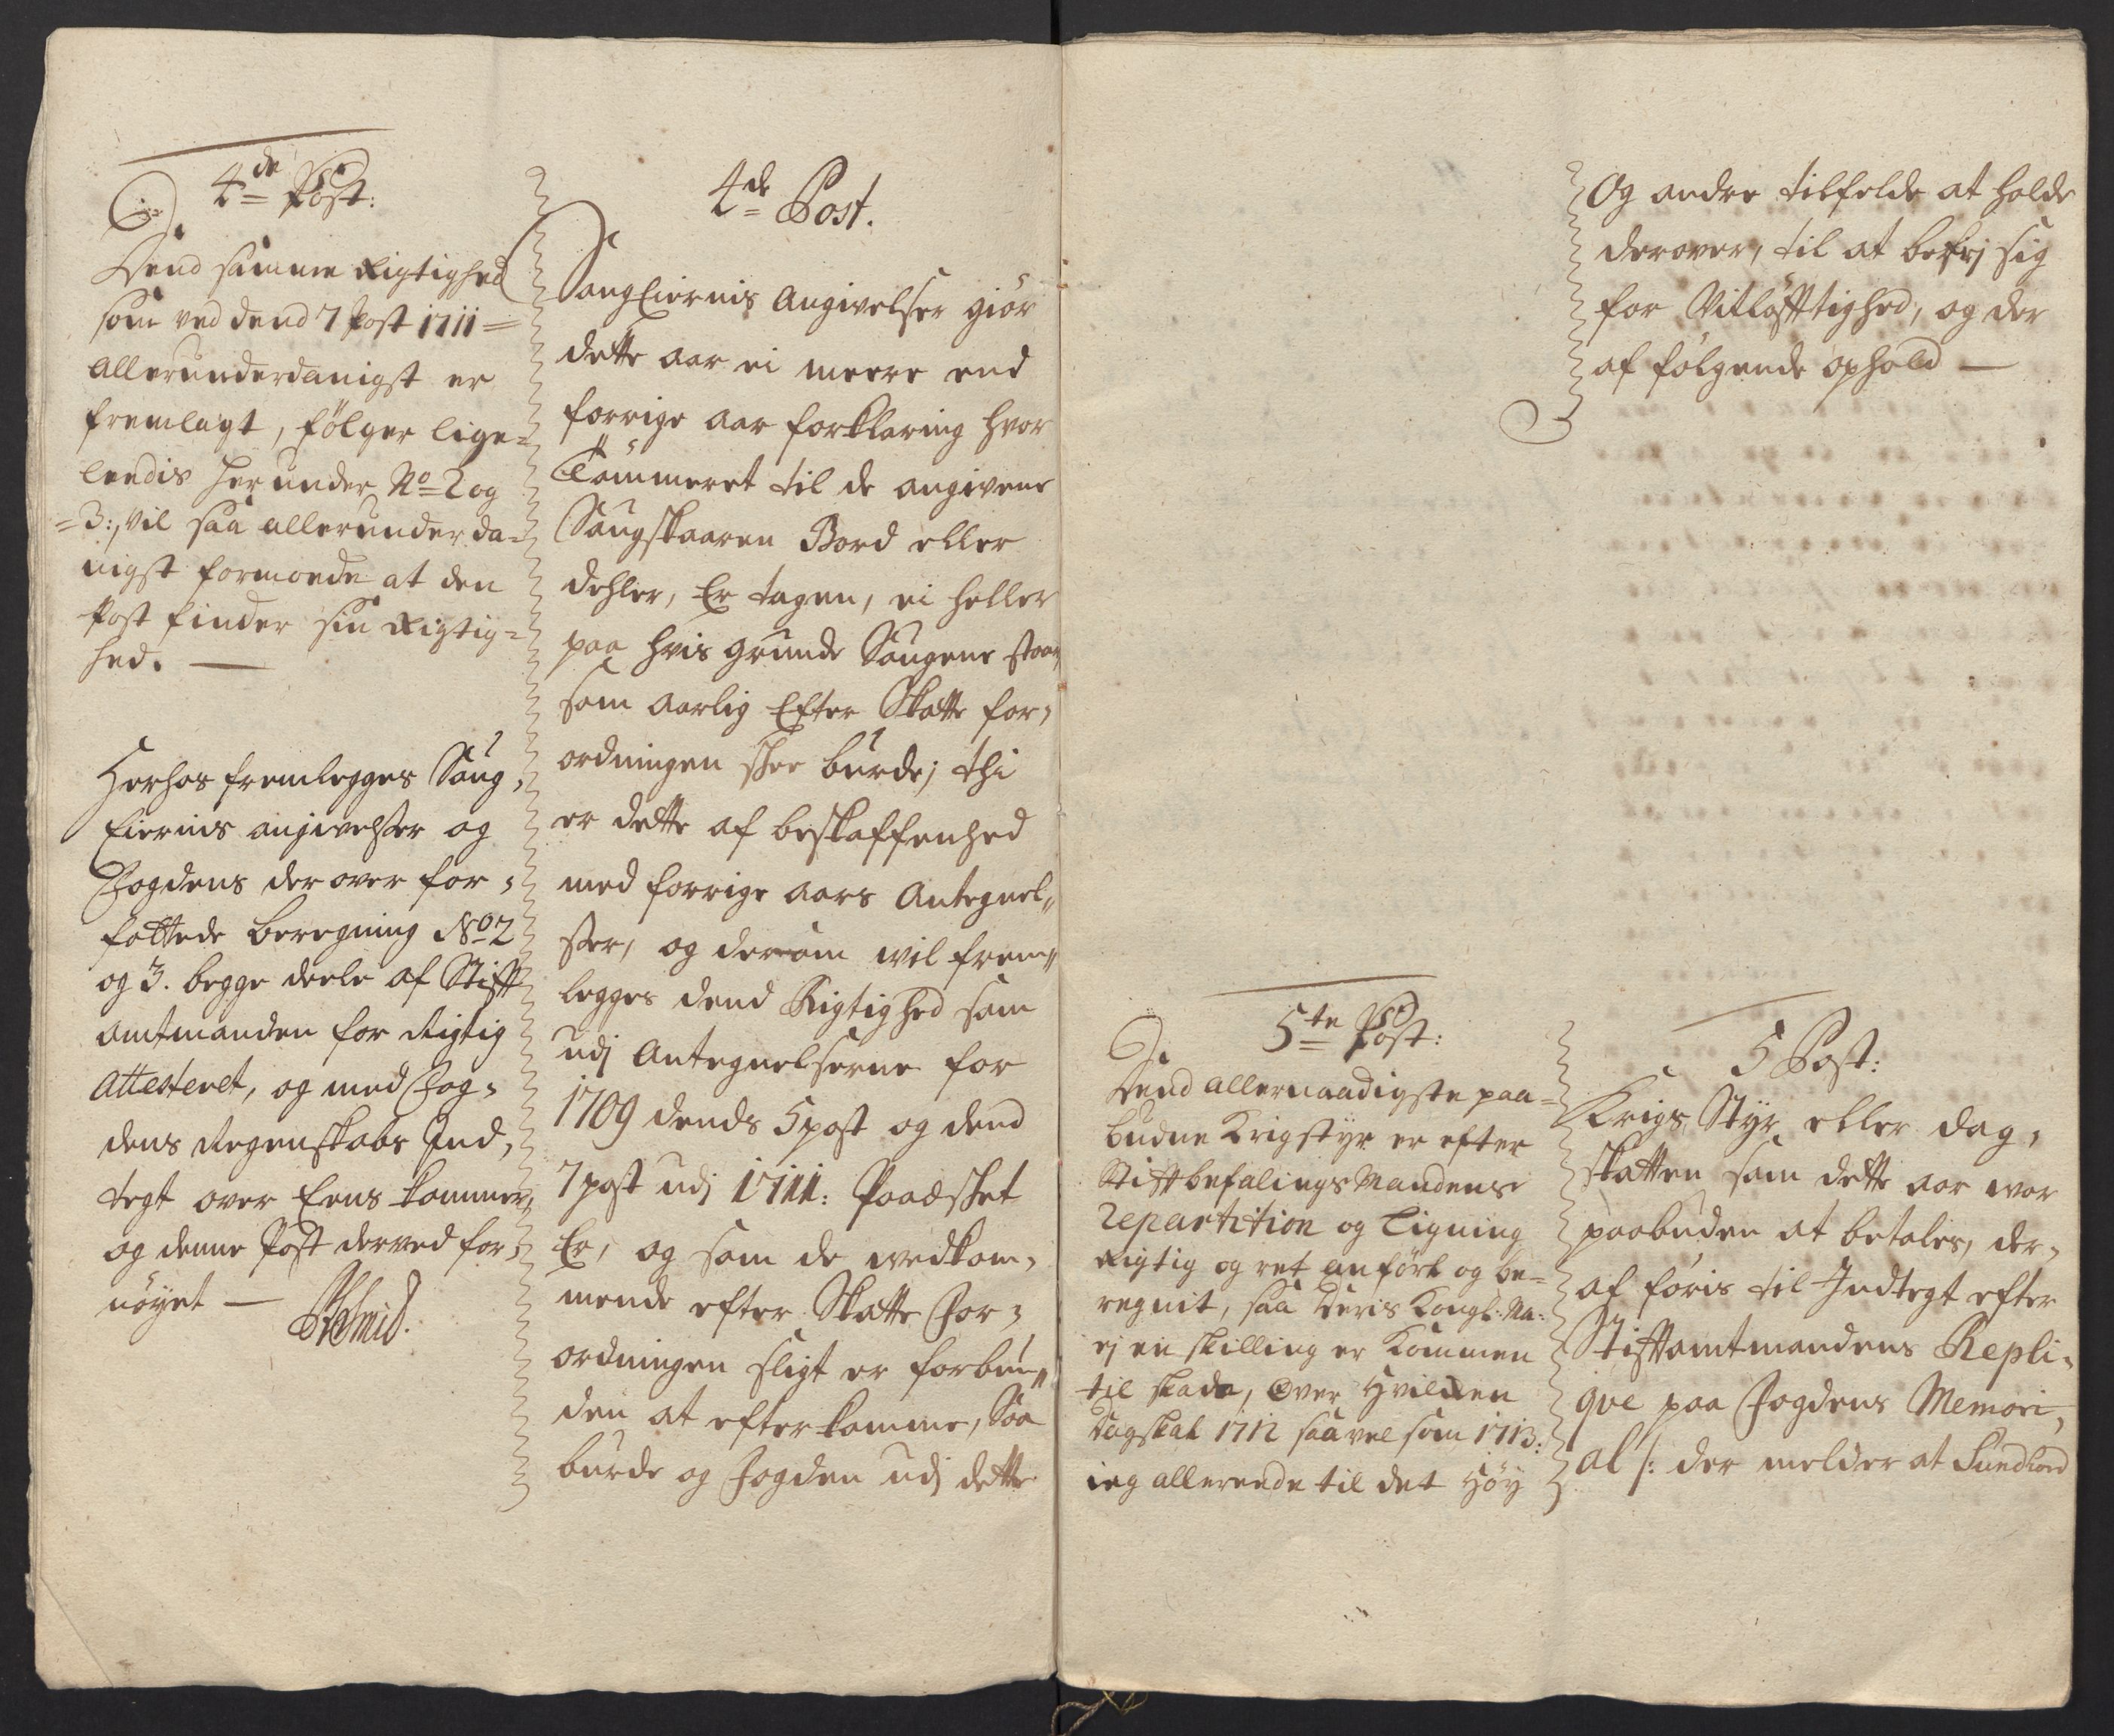 4de Post:
Dend samme Rigtighed
som ved dend 7 Post 1711
allerunderdanigst er
fremlagt, fölger lige=
lendis her under No 2 og
=3:, vil saa allerunderda=
nigst formoede at den
Post finder sin Rigtig=
hed.
Herhos fremlegges Saug,
Eiernis angivelsser og
Fogdens der over for,
fattede beregning No 2
og 3. begge deele af Stifft
amtmanden for Rigtig
Attesteret, og med Fog,
dens Regenskabs Ind,
tegt over Eens kommer,
og denne Post derved for,
nöyet —
4de Post.
SaugEiernis Angivelser giör
dette aar ei meere end
forrige aar forklaring hvor
Tömmeret til de angivene
Saugskaaren Bord eller
dehler, Er tagen, ei heller
paa hvis grunde Saugene staar,
som aarlig Efter Skatte for,
ordningen skee burde; thi
er dette af beskaffenhed
med forrige aars Antegnel,,
ser, og derom wil frem,,
legges dend Rigtighed som
udj Antegnelserne for
1709 dends 5 post og dend
7 post udj 1711: Paadsket
Er, og som de wedkom,
mende efter Skatte For,
ordningen sligt er forbun,,
den at efterkomme, Saa
burde og Fogden udj dette
Og andre tilfelde at holde
derover, til at befrj sig
for Vitlöfftighed, og der
af fölgende ophold —
5te Post:
Dend allernaadigste paa=
budne Krigstyr er efter
StiftbefalingsMandens
repartition og Ligning
Rigtig og ret anfört og be=
regnit, saa Deris Kongl: Ma:
ej en skilling er kommen
til skade, Over hvilcken
Dagskat 1712 saavel som 1713:
ieg allerede til det Höy
5 Post:
Krigs Styr eller dag,
skatten som dette aar war
paabuden at betales, der,
af föris til Indtegt efter
Stiftamtmandens Repli,
que paa Fogdens Memori,
al /: der melder at Sundhord